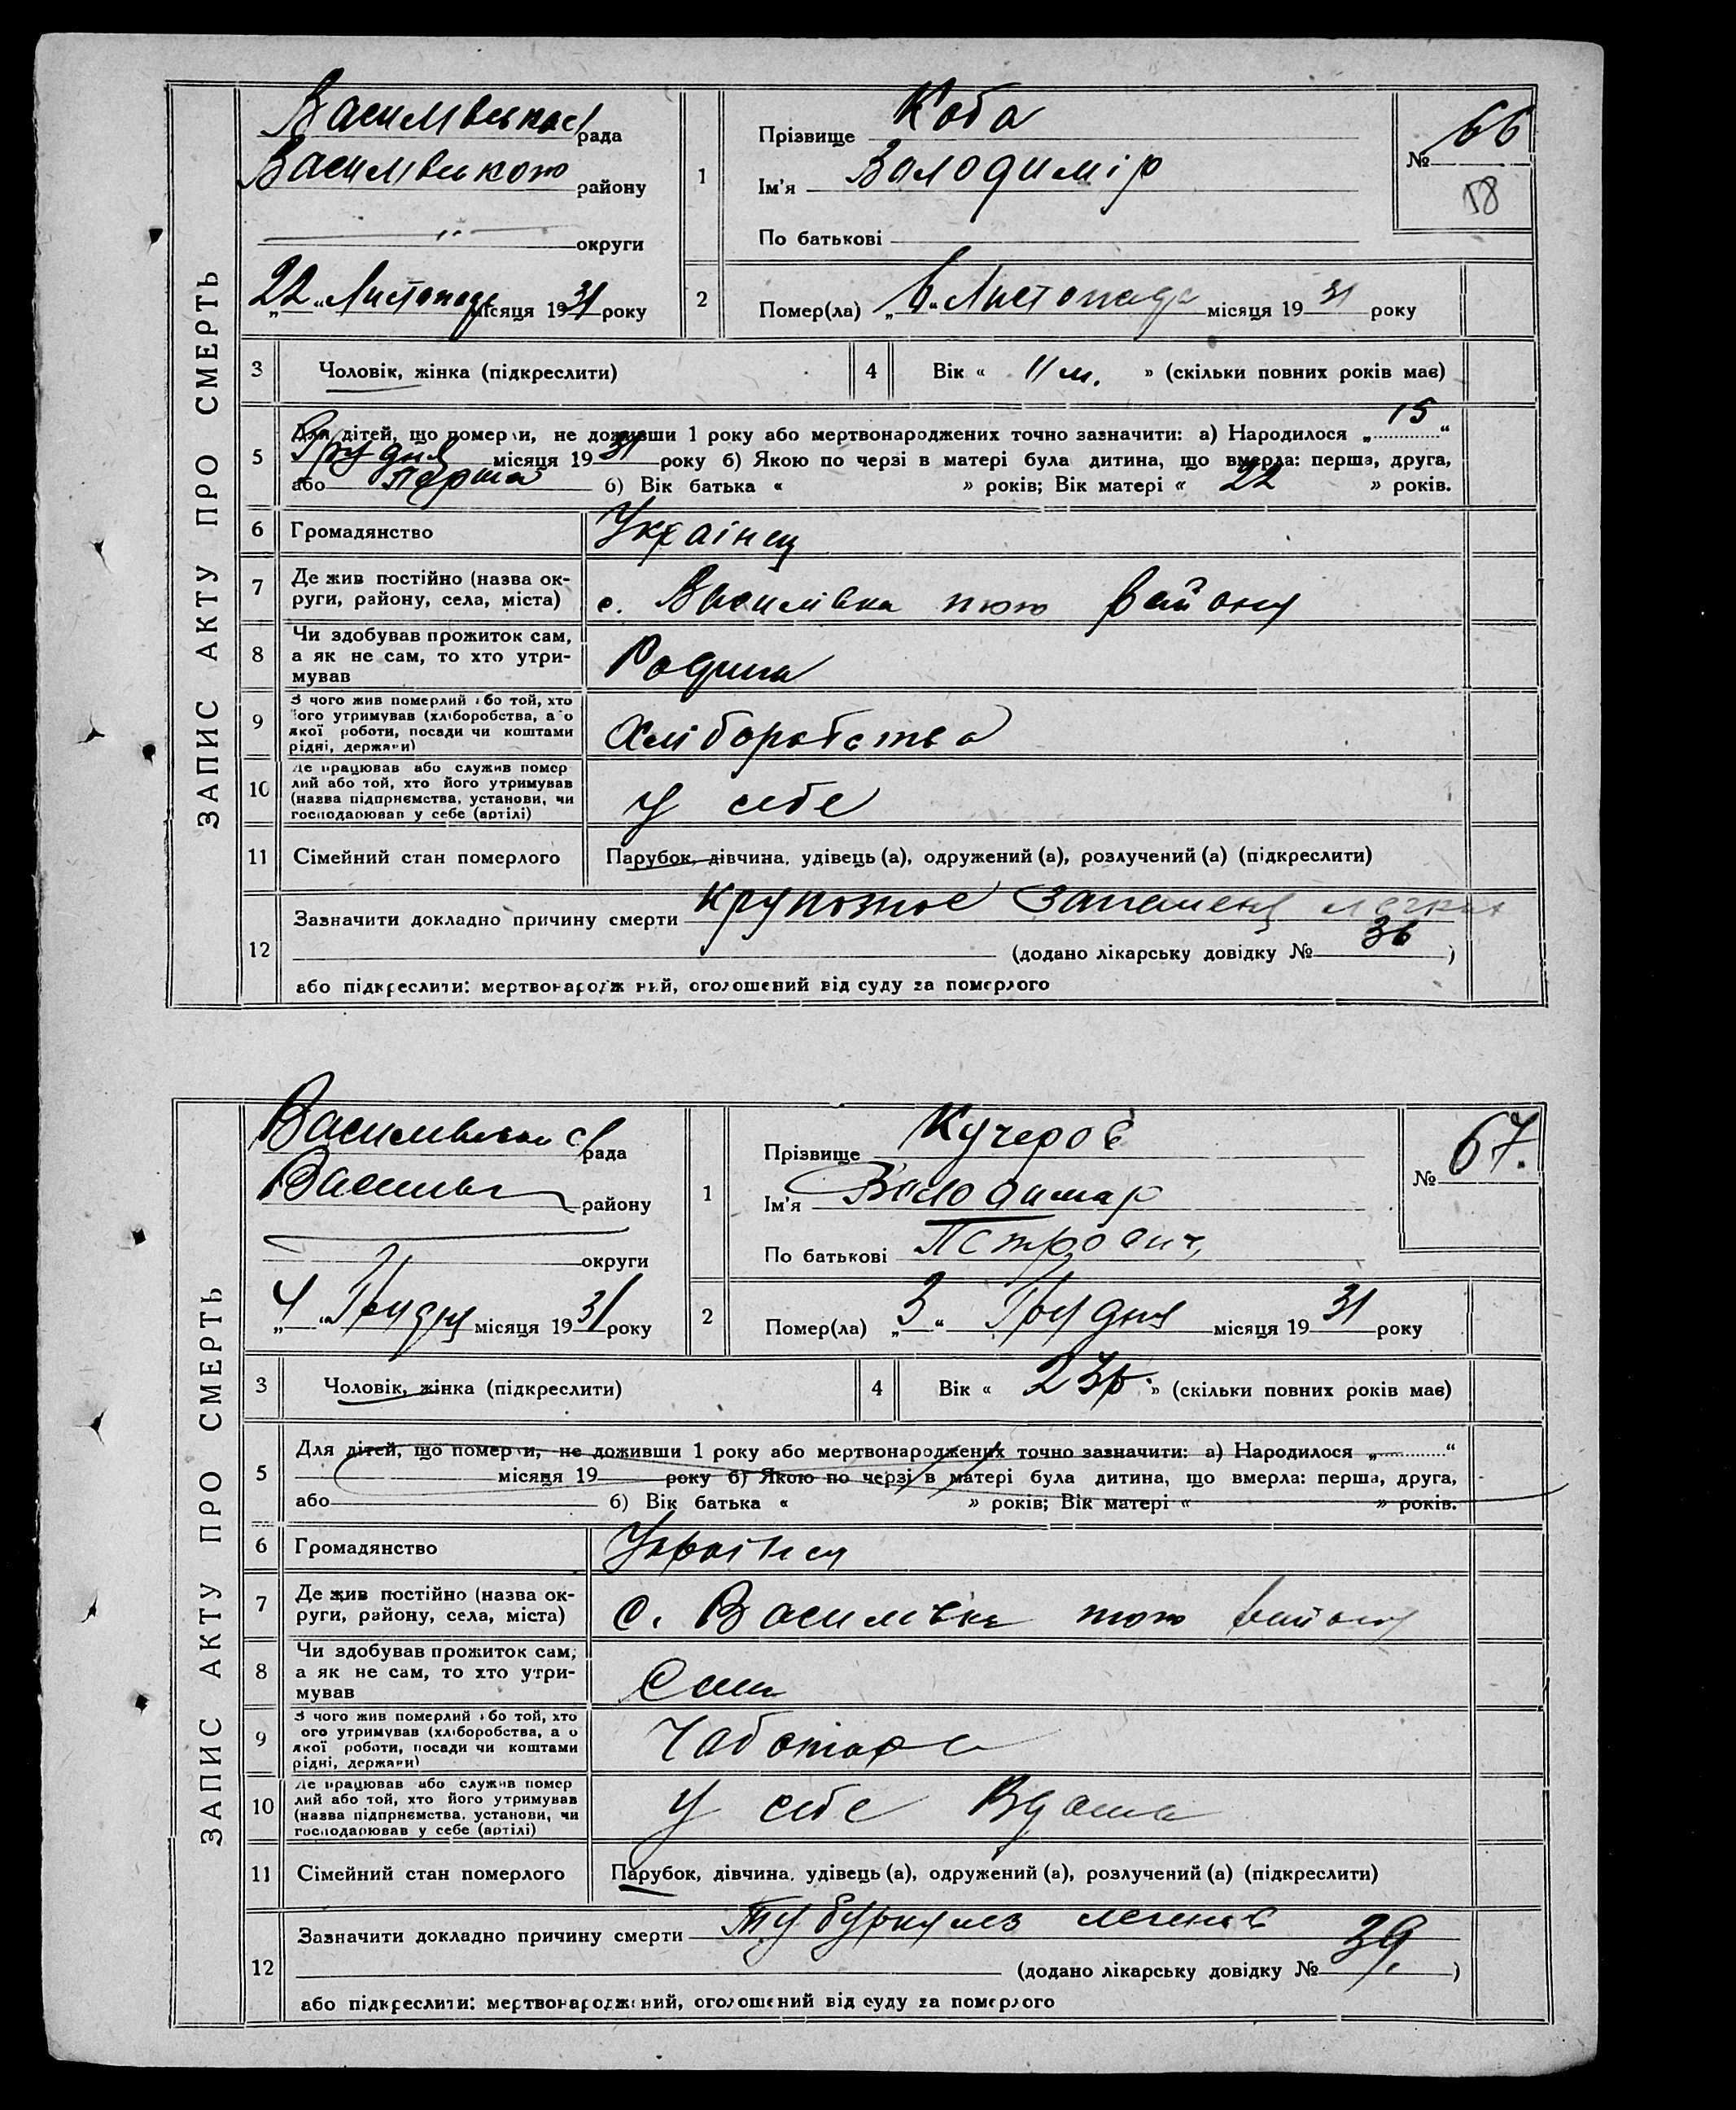 ЗАПИС АКТУ ПРО СМЕРТЬ
Василівська с/рада
Василівського району
округи
„22“ Листопада місяця 1931 року
1
Прізвище Коба
Ім'я Володимір
По батькові
№ 66
58
2
Помер(ла) „6“ Листопада місяця 1931 року
3
Чоловік, жінка (підкреслити)
4
Вік « 11 м. » (скільки повних років має)
5
Для дітей, що померли, не доживши 1 року або мертвонароджених точно зазначити: а) Народилося „15“
Грудня місяця 1931 року б) Якою по черзі в матері була дитина, що вмерла: перша, друга,
або Перша б) Вік батька « » років; Вік матері « 22 » років.
6
Громадянство
Українец
7
Де жив постійно (назва ок-
руги, району, села, міста)
с. Василівка тою району
8
Чи здобував прожиток сам,
а як не сам, то хто утри-
мував
Родина
9
З чого жив померлий або той, хто
його утримував (хліборобства, або
якої роботи, посади чи коштами
рідні, держави)
Хліборобства
10
Де працював або служив помер
лий або той, хто його утримував
(назва підприємства, установи, чи
господарював у себе (артілі)
У себе
11
Сімейний стан померлого
Парубок, дівчина, удівець (а), одружений (а), розлучений (а) (підкреслити)
12
Зазначити докладно причину смерти Крупозное легких
(додано лікарську довідку № 36 )
або підкреслити: мертвонароджений, оголошений від суду за померлого
ЗАПИС АКТУ ПРО СМЕРТЬ
с/рада
району
округи
„4“ Грудня місяця 1931 року
1
Прізвище Кучеров
Ім'я Володимир
По батькові Петрович
№ 67.
2
Помер(ла) „3“ Грудня місяця 1931 року
3
Чоловік, жінка (підкреслити)
4
Вік « 23 р. » (скільки повних років має)
5
Для дітей, що померли, не доживши 1 року або мертвонароджених точно зазначити: а) Народилося „ “
місяця 19 року б) Якою по черзі в матері була дитина, що вмерла: перша, друга,
або б) Вік батька « » років; Вік матері « » років.
6
Громадянство
Українец
7
Де жив постійно (назва ок-
руги, району, села, міста)
с. Василівка тою району
8
Чи здобував прожиток сам,
а як не сам, то хто утри-
мував
Сам
9
З чого жив померлий або той, хто
ого утримував (хліборобства, або
якої роботи, посади чи коштами
рідні, держави)
10
Де працював або служив помер
лий або той, хто його утримував
(назва підприємства, установи, чи
господарював у себе (артілі)
У себе Вдома
11
Сімейний стан померлого
Парубок, дівчина, удівець (а), одружений (а), розлучений (а) (підкреслити)
12
Зазначити докладно причину смерти Тубуркулез легенів
(додано лікарську довідку № 39. )
або підкреслити: мертвонароджений, оголошений від суду за померлого